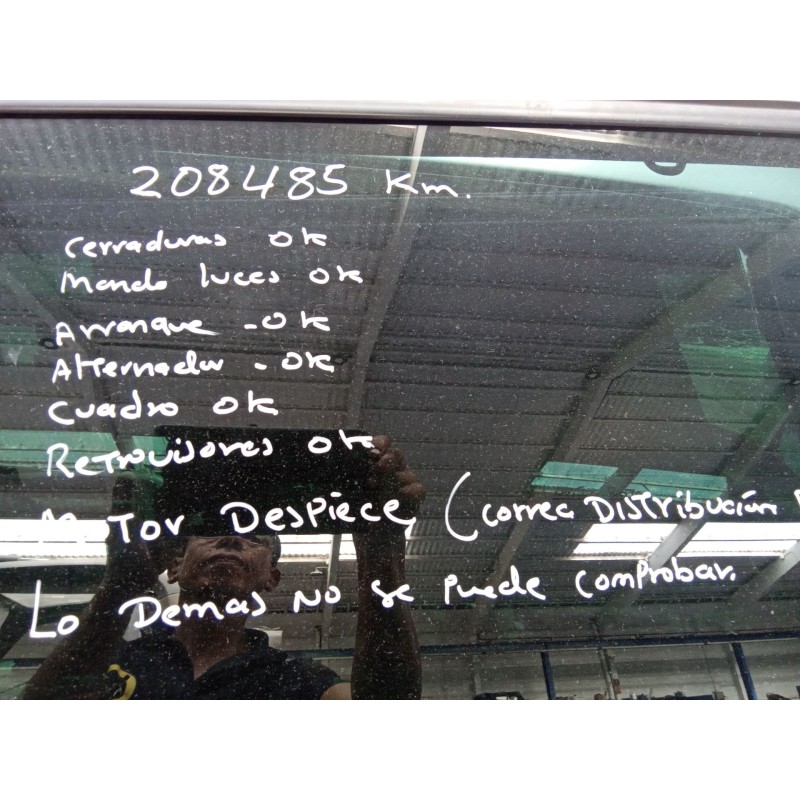 208485 Km.
Cerraduras ok
Mando luces ok
Arranque - ok
Alternador - ok
Cuadro ok
Retrovisores ok
Motor Despiece (correa Distribución
Lo Demas No se puede comprobar.